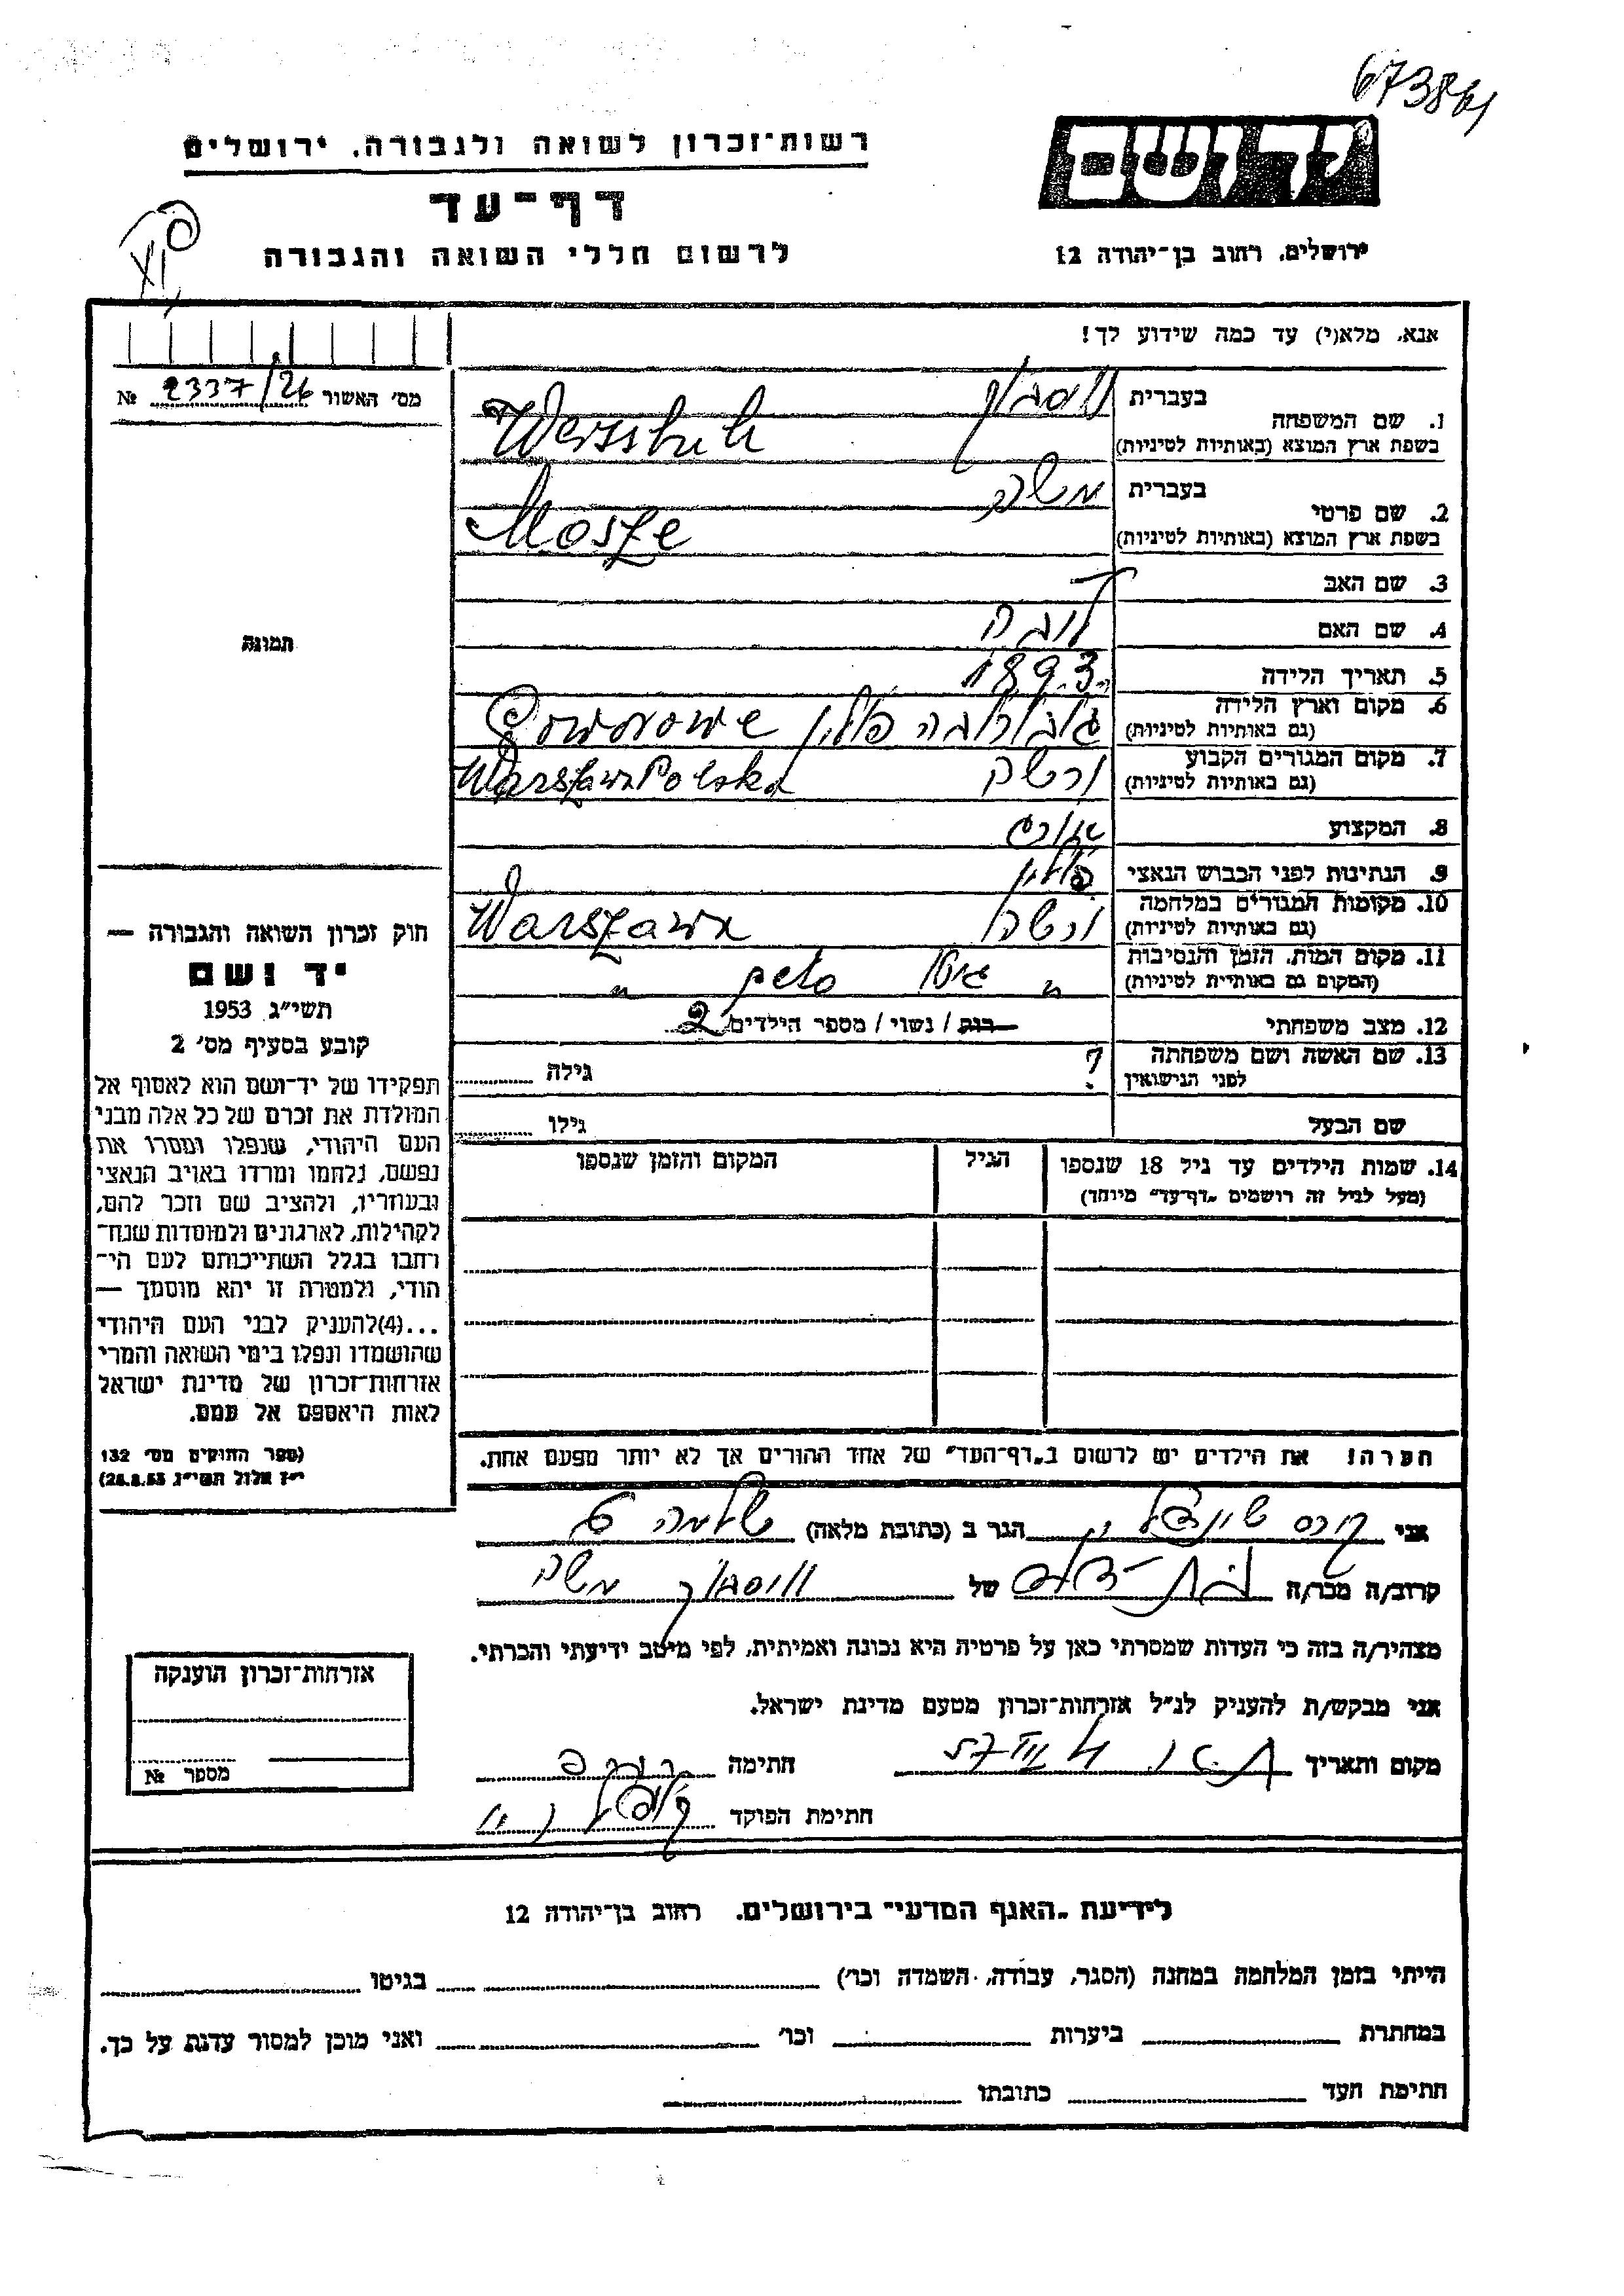 673861
יד ושם
רשות־זכרון לשואה ולגבורה, ירושלים
דף־עד
לרשום חללי השואה והגבורה
ירושלים, רחוב בן־יהודה 12
אנא, מלא(י) עד כמה שידוע לך!
מס׳ האשור 2337/26 №
1. שם המשפחה
בעברית
בשפת ארץ המוצא (באותיות לטיניות) Wersshuh
2. שם פרטי
בעברית משה
בשפת ארץ המוצא (באותיות לטיניות) Mosze
3. שם האב
4. שם האם
5. תאריך הלידה 1893
6. מקום וארץ הלידה
(גם באותיות לטיניות) פולין Goworowe
7. מקום המגורים הקבוע
(גם באותיות לטיניות) ורשה Warszawa Polska
8. המקצוע
9. הנתינות לפני הכבוש הנאצי פולין
10. מקומות המגורים במלחמה
(גם באותיות לטיניות) ורשה Warszawa
11. מקום המות, הזמן והנסיבות
(המקום גם באותיות לטיניות) " גיטו "
12. מצב משפחתי רוק / נשוי / מספר הילדים 2
13. שם האשה ושם משפחתה
לפני הנישואין ? גילה
שם הבעל גילו
14. שמות הילדים עד גיל 18 שנספו
(מעל לגיל זה רושמים „דף־עד״ מיוחד)
הגיל
המקום והזמן שנספו
הערה! את הילדים יש לרשום ב„דף־העד״ של אחד ההורים אך לא יותר מפעם אחת.
תמונה
חוק זכרון השואה והגבורה —
יד ושם
תשי״ג 1953
קובע בסעיף מס׳ 2
תפקידו של יד־ושם הוא לאסוף אל
המולדת את זכרם של כל אלה מבני
העם היהודי, שנפלו ומסרו את
נפשם, נלחמו ומרדו באויב הנאצי
ובעוזריו, ולהציב שם וזכר להם,
לקהילות, לארגונים ולמוסדות שנח־
רחבו בגלל השתייכותם לעם הי־
הודי, ולמטרה זו יהא מוסמך —
...(4)להעניק לבני העם היהודי
שהושמדו ונפלו בימי השואה והמרי
אזרחות־זכרון של מדינת ישראל
לאות היאספם אל עמם.
(ספר החוקים מס׳ 132
י״ז אלול תשי״ג 28.8.53)
אני הגר ב (כתובת מלאה) שלמה 6
קרוב/ה מכר/ה של משה
מצהיר/ה בזה כי העדות שמסרתי כאן על פרטיה היא נכונה ואמיתית, לפי מיטב ידיעתי והכרתי.
אני מבקש/ת להעניק לנ״ל אזרחות־זכרון מטעם מדינת ישראל.
מקום ותאריך 57 חתימה
חתימת הפוקד
אזרחות־זכרון הוענקה
מספר №
לידיעת „האגף המדעי״ בירושלים, רחוב בן־יהודה 12
הייתי בזמן המלחמה במחנה (הסגר, עבודה, השמדה וכו׳) בגיטו
במחתרת ביערות וכו׳ ואני מוכן למסור עדות על כך.
חתימת העד כתובתו